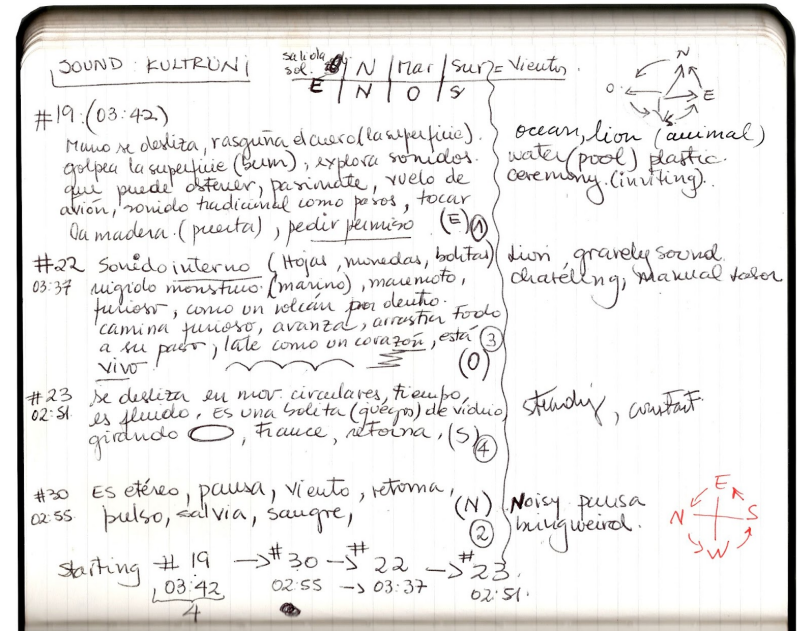 SOUND : KULTRUN
salida sol. | N | Mar | Sur = Vientos.
E | N | O | S
N
O
E
#19: (03:42)
Mano se desliza, rasguña el cuero (la superficie).
golpea la superficie (bum), explora sonidos.
que puede obtener, vuelo de
avión, sonido tradicional como pasos, tocar
la madera. (puerta), pedir permiso (E) 1
ocean, lion (animal)
water (pool) plastic.
ceremony. (inviting).
#22 Sonido interno (Hojas, monedas, bolitas)
03:37 rugido monstruo. (marino), maremoto,
furioso, como un volcán por dentro.
camina furioso, avanza, arrastra todo
a su paso, late como un corazón, está 3
vivo. (O)
Lion, gravely sound.
chateling, manual labor
#23 se desliza en mov. circulares, tiempo,
02:51 es fluido. Es una bolita (juego) de vidrio
girando, trance, retorna, (S) 4
steady, constant.
#30 Es etéreo, pausa, viento, retoma,
02:55 pulso, salvia, sangre, (N)
2
Noisy pausa
weird.
E
N S
W
starting #19 -> #30 -> #22 -> #23.
03:42 02:55 -> 03:37 02:51.
4